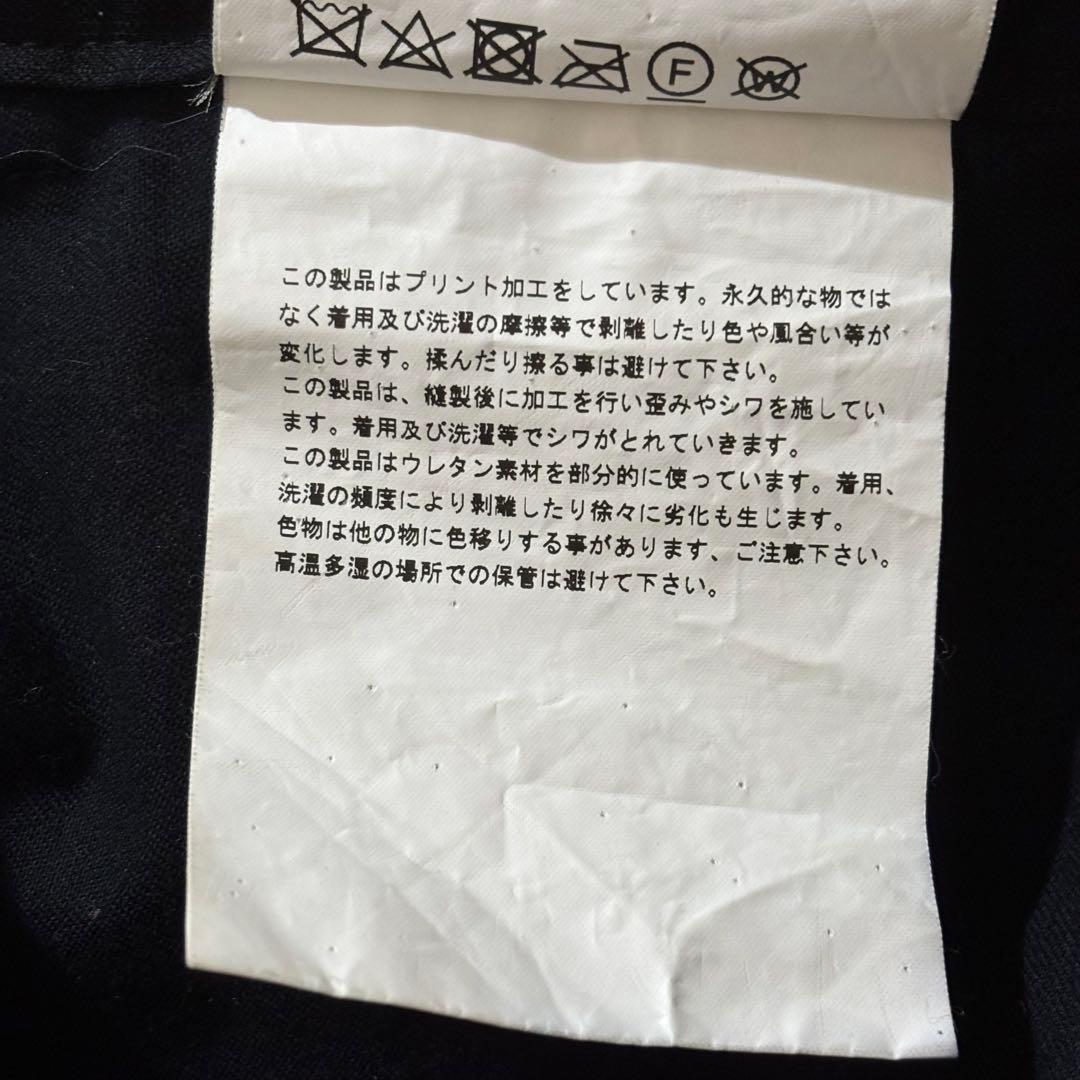 F
W
この製品はプリント加工をしています。永久的な物では
なく着用及び洗濯の摩擦等で剥離したり色や風合い等が
変化します。揉んだり擦る事は避けて下さい。
この製品は、縫製後に加工を行い歪みやシワを施してい
ます。着用及び洗濯等でシワがとれていきます。
この製品はウレタン素材を部分的に使っています。着用、
洗濯の頻度により剥離したり徐々に劣化も生じます。
色物は他の物に色移りする事があります、ご注意下さい。
高温多湿の場所での保管は避けて下さい。